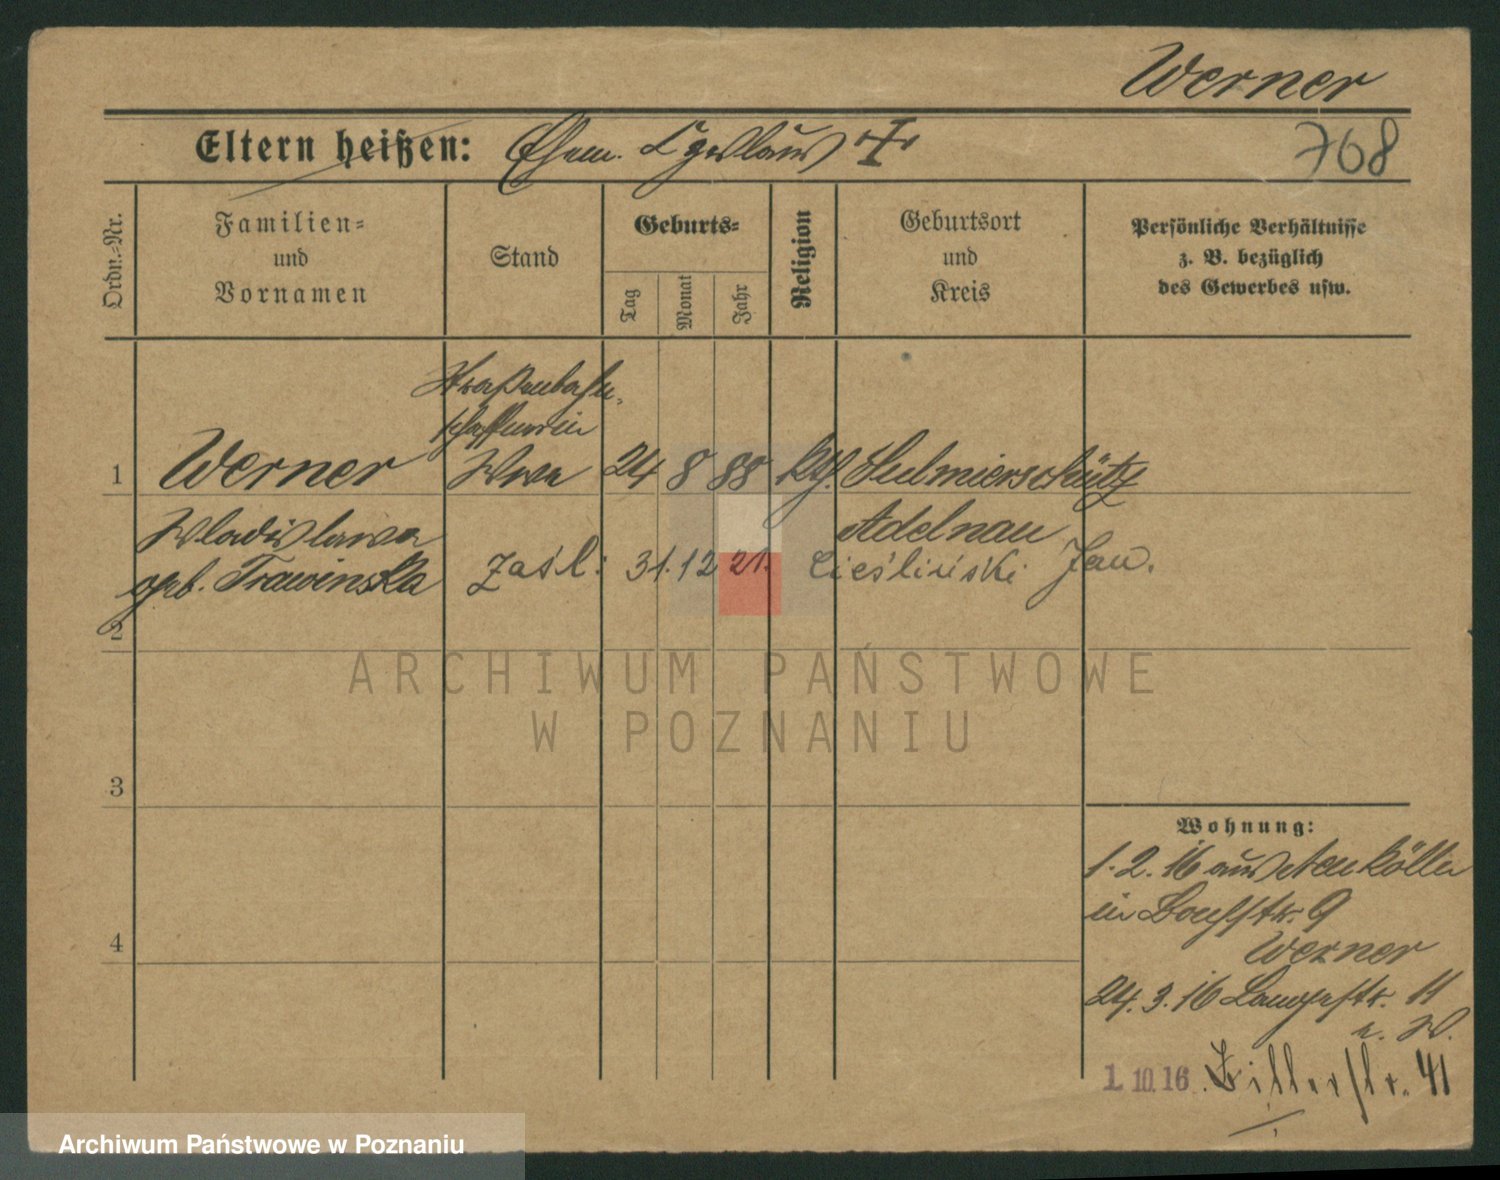 Werner
Eltern heißen: Ehem. Czeslaus
768
Ordn.-Nr.
Familien-
und
Vornamen
Stand
Geburts-
Tag
Monat
Jahr
Religion
Geburtsort
und
Kreis
Persönliche Verhältnisse
z. B. bezüglich
des Gewerbes usw.
Straßenbahn-
schaffnerin
1 Werner Wwe 24 8 88 kth. Sulmierschütz
Wladislawa Adelnau
geb. Trawinska zaśl: 31.12 21. Cieśliński Jan.
2
ARCHIWUM PAŃSTWOWE
W POZNANIU
3
Wohnung:
1. 2. 16 aus Neukölln
in Bachstr. 9
4
Werner
24. 3. 16 Langestr. 11
n. W.
1. 10. 16 Bitterstr. 41
Archiwum Państwowe w Poznaniu